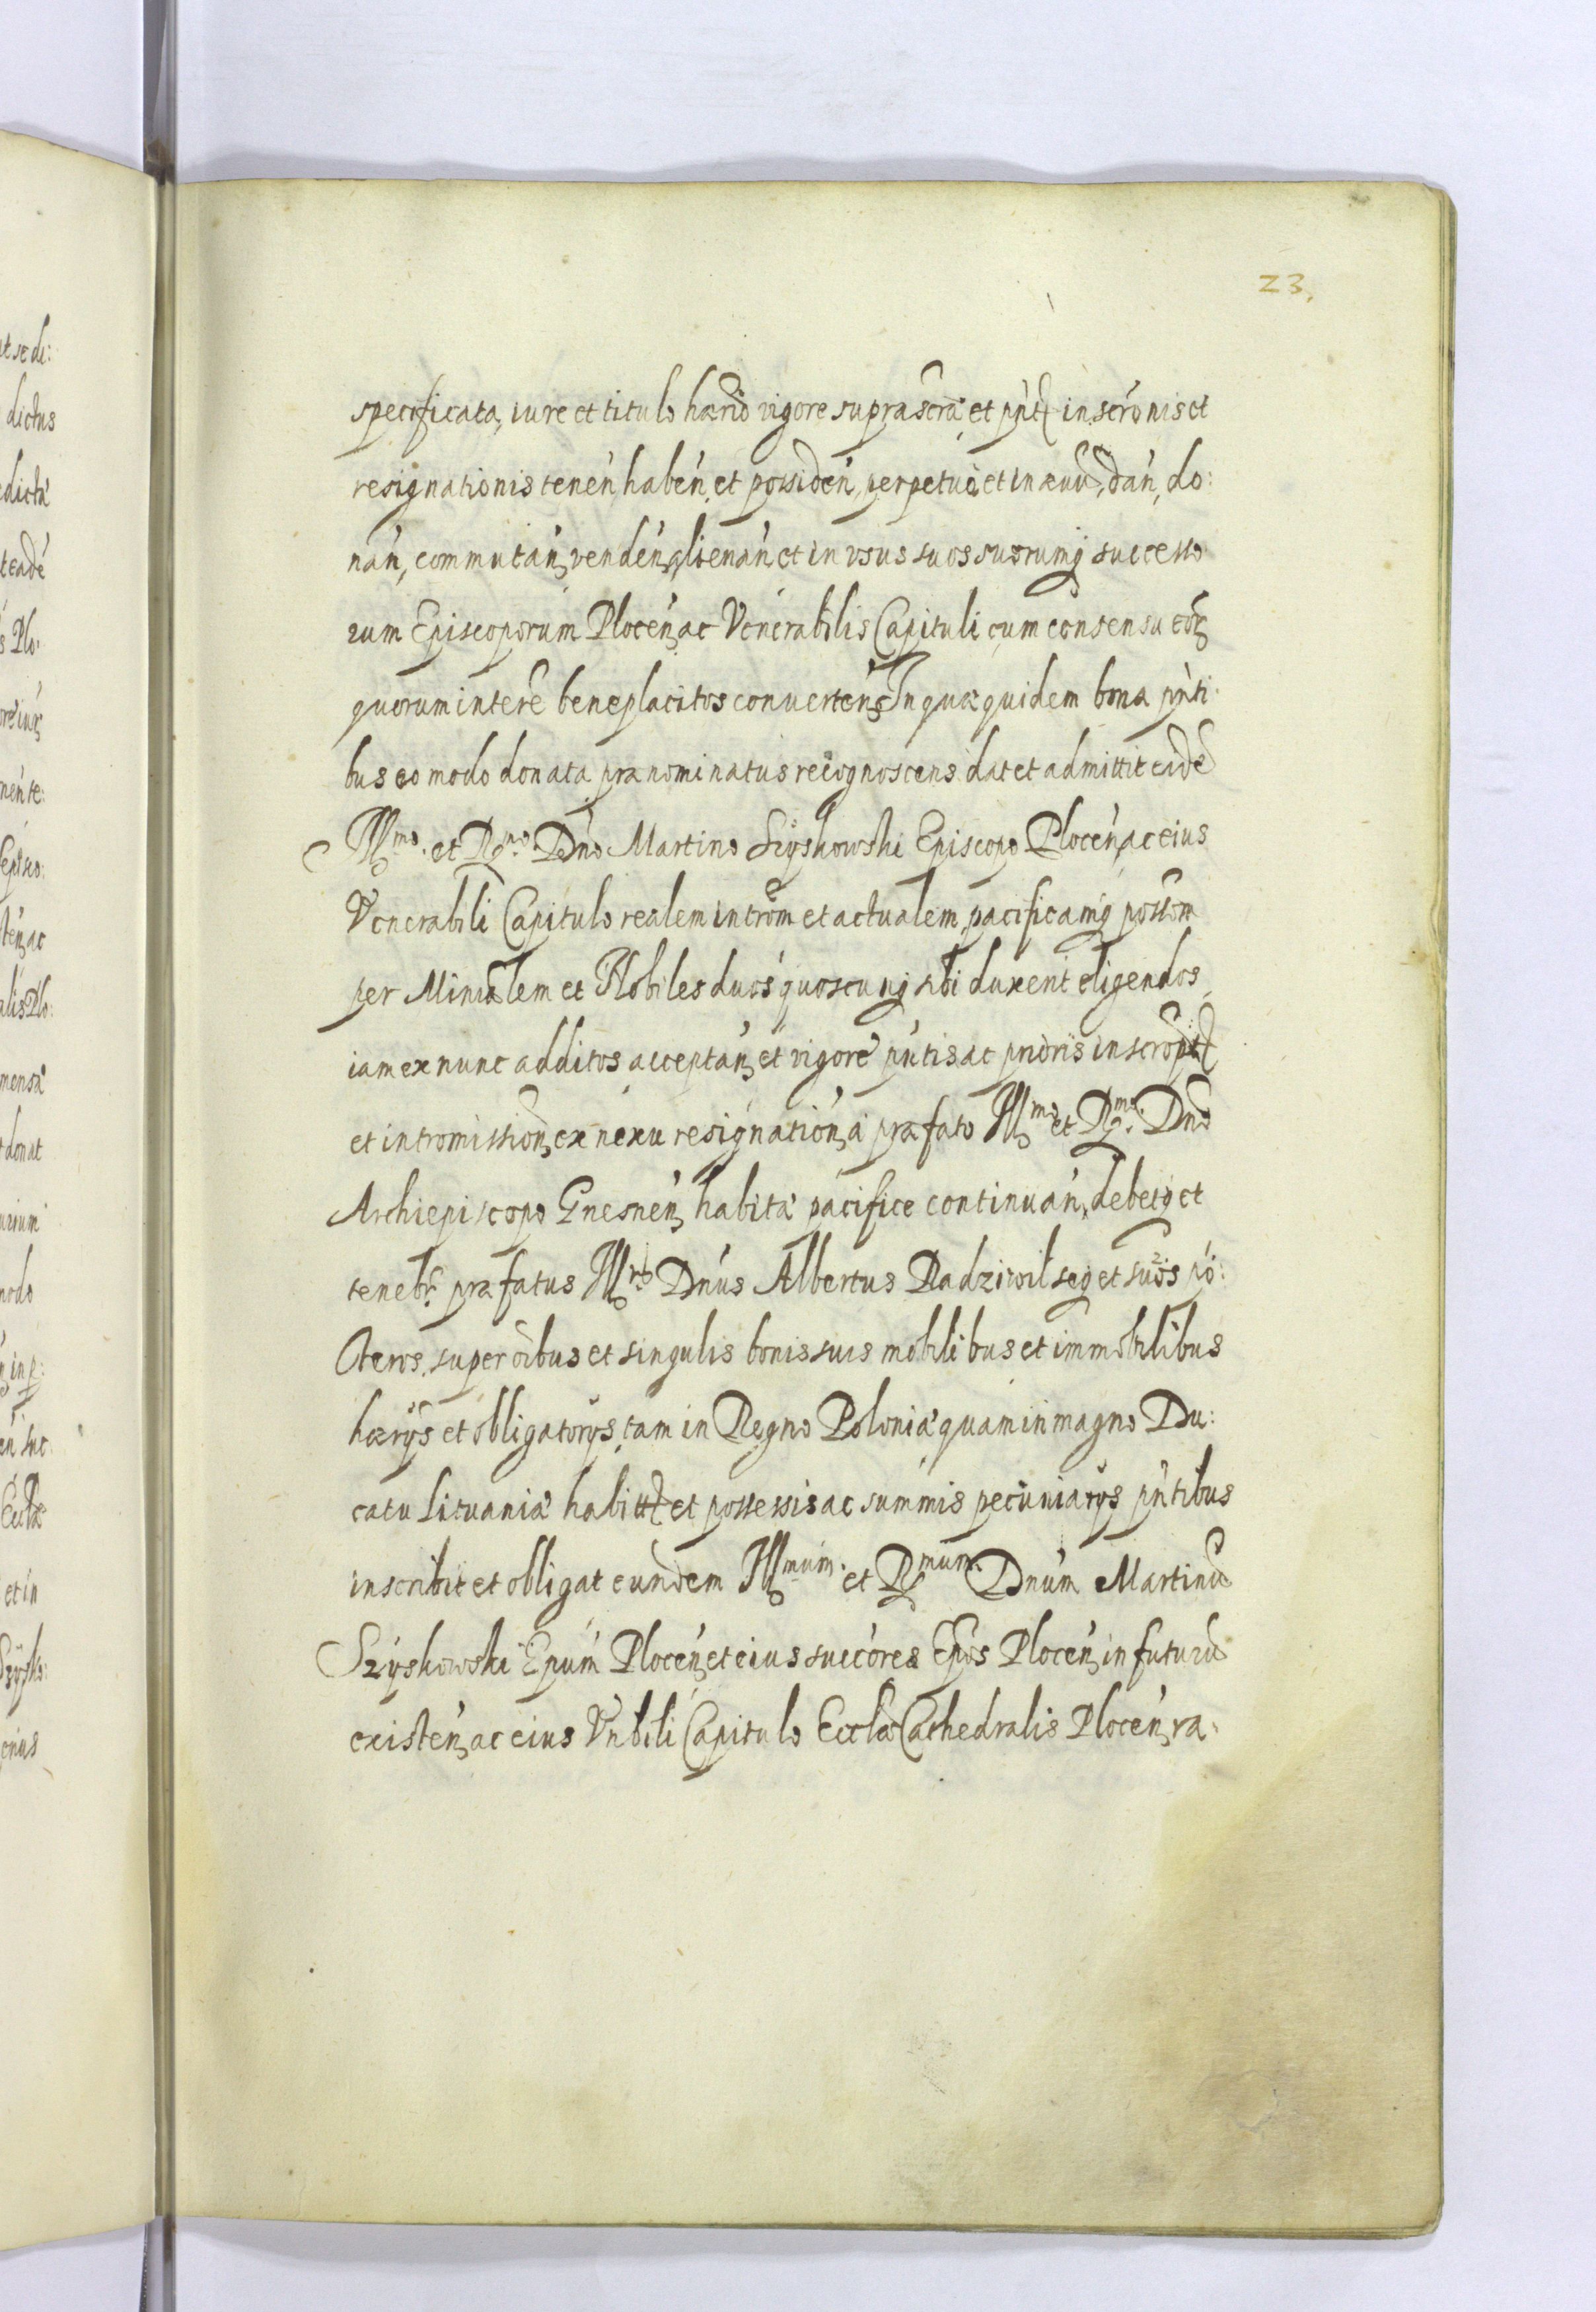 23.
specificata, iure et titulo hærio vigore suprascrā et pn̄t inscrōnis et
resignationis tenen̄, haben̄, et possiden̄, perpetuè et in æuū, dan̄, do:
nan̄, commutan̄, venden̄, alienan̄ et in vsus suos suorumq̨ successo
rum Episcoporum Plocen̄, ac Venerabilis Capituli cum consensu eōr
quorum interē beneplacitos conuerten̄, In quæ quidem bona pn̄ti
bus eo modo donata prænominatus recognoscens dat et admittit eidē
Illmo. et Rmo. Dn̄o Martino Szyskowski Episcopo Plocen̄, ac eius
Venerabili Capitulo realem introm̄ et actualem, pacificamq̨ possom̄
per Minrālem et Nobiles duos quoscunq̨ sibi duxerit eligendos,
iam ex nunc additos acceptan̄, et vigore pn̄tis ac prioris inscrōpt
et intromission̄, ex nexu resignation̄, à præfato Illmo et Rmo. Dn̄o
Archiepiscopo Gnesnen̄, habitā pacifice continuan̄, debetq̨ et
tenebr̄. præfatus Illris Dn̄us Albertus Radziwil seq̨ et suos pō:
steros. super oībus et singulis bonis suis mobilibus et immobilibus
hærys et obligatorys, tam in Regno Poloniæ quam in magno Du:
catu Lituaniæ habitt et possessis ac summis pecuniarys pn̄tibus
inscribit et obligat eundem Illmum. et Rmum. Dn̄um Martinū
Szyskowski Ep̄um Plocen̄, et eius succōres Ep̄os Plocen̄, in futurū
existen̄, ac eius Vn̄bili Capitulo Ecclæ Cathedralis Plocen̄, ra: